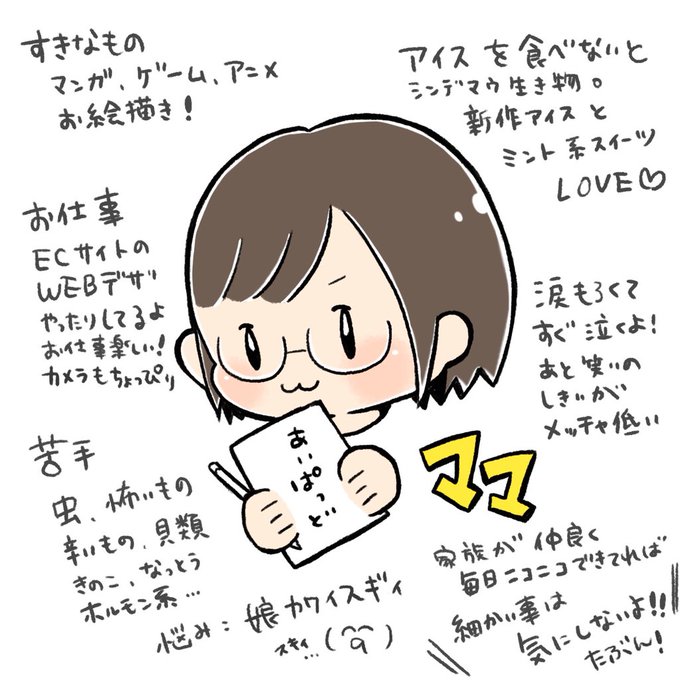 すきなもの
マンガ、ゲーム、アニメ
お絵描き!
アイスを食べないと
シンデマウ生き物。
新作アイスと
ミント系スイーツ
LOVE♡
お仕事
ECサイトの
WEBデザ
やったりしてるよ
お仕事楽しい!
カメラもちょっぴり
涙もろくて
すぐ泣くよ!
あと笑いの
しきいが
メッチャ低い
あいぱっど
苦手
虫、怖いもの
辛いもの、貝類
きのこ、なっとう
ホルモン系…
ママ
家族が仲良く
毎日ニコニコできてれば
細かい事は
気にしないよ!!
たぶん!
悩み:娘カワイスギィ
スキィ…